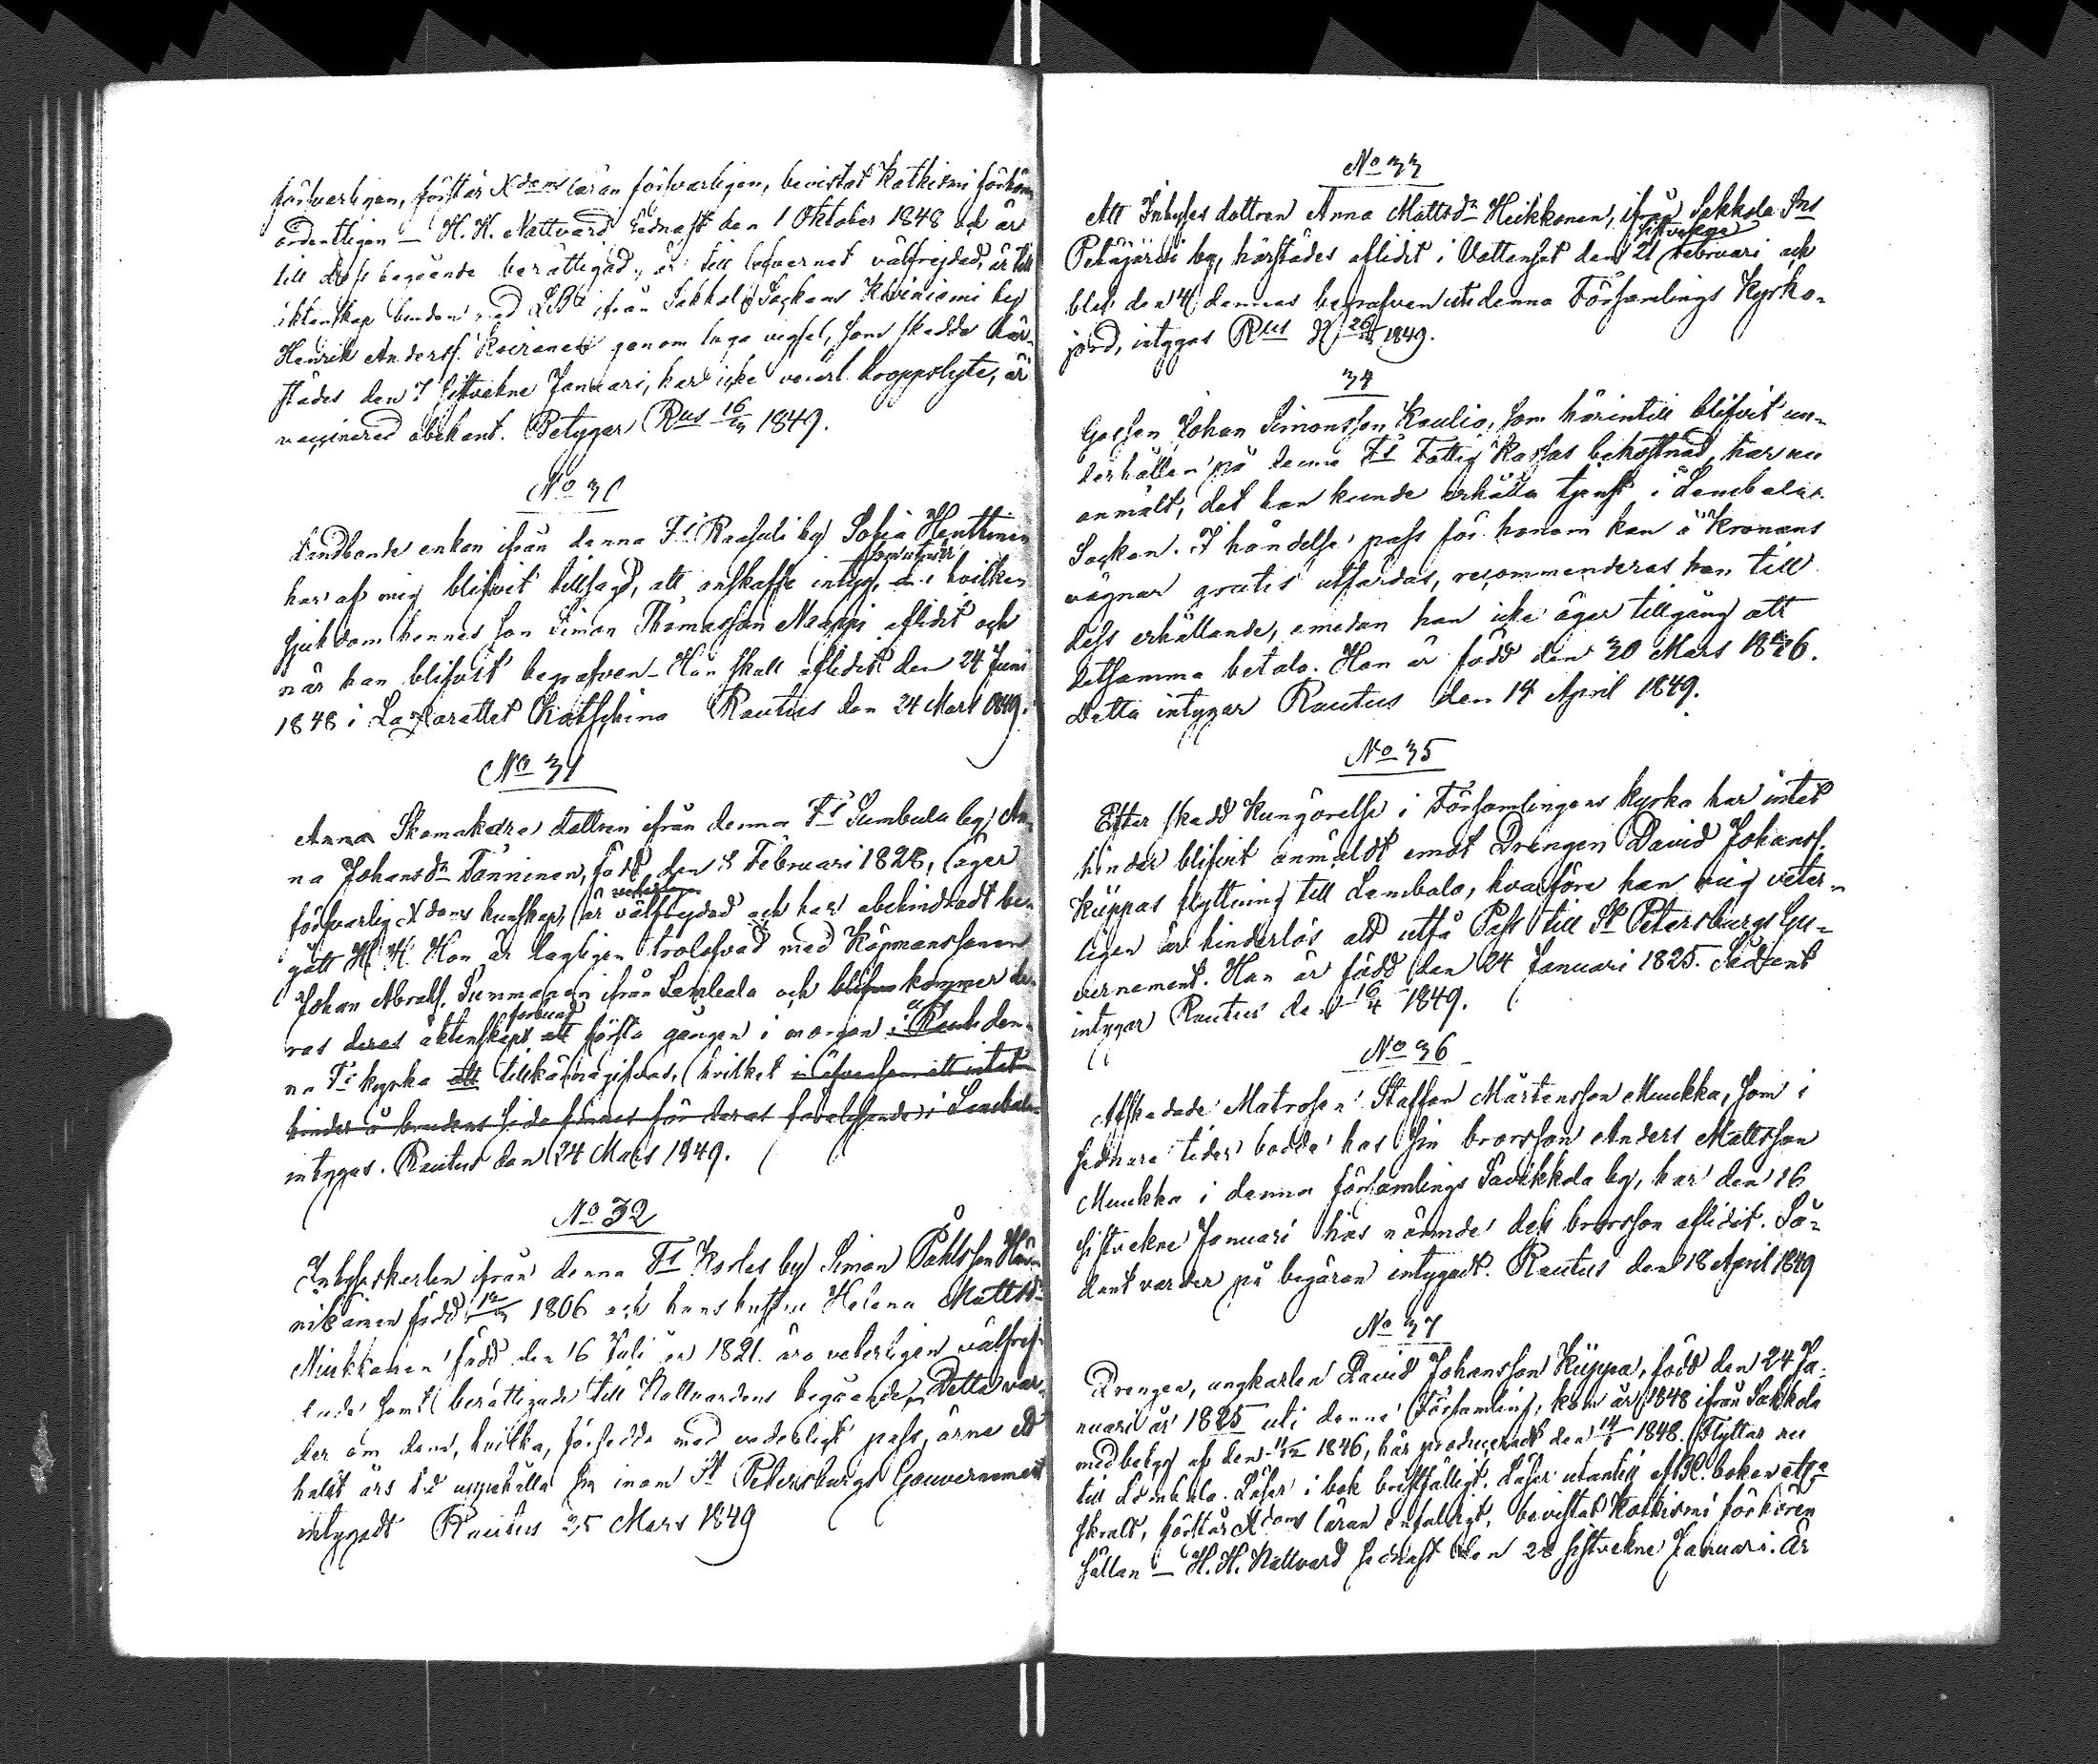 försvarligen, förstår Xdoms läran försvarligen, bevistat Katkismi förhören
ordentligen — H. H. Nattvard sednast den 1 Oktober 1848 och är
till dess begående berättigad, är till lefvernet välfrejdad, är till
äktenskap bunden med ifrån Sakkola Sockens Kiviniemi by
Henrik Anderss. Koiranen genom laga vigsel, som skedde här-
städes den 7 sistvekne Januari, har icke veterl. kroppslyte, är
vaccinerad obekant. Betygar Rus 16/3 1849.
No 30
Landbonde enkan ifrån denna Fs Raasuli by Sofia Henttinen
har af mig blifvit tillsagd, att anskaffa intyg, i hvilken
sjukdom hennes son Simon Thomasson Naappi aflidit och
när han blifvit begrafven. Han skall aflidit den 24 Juni
1848 i Lazarettet Katschina Rautus den 24 Mars 1849.
No 31
Anna Skomakare dottren ifrån denna Fs Sumbula by, An-
na Johansdr Tanninen, född den 8 Februari 1828, äger
försvarlig Xdoms kunskap, är veterligen välfrejdad och har obehindradt be-
gått H. H. Hon är lagligen trolofvad med Köpmanssonen
Johan Abrahs. Summanen ifrån Lembala och blifva kommer de-
ras deras äktenskaps förbund att första gången i morgon i Raut. den-
na Fs kyrka att tillkännagifvas, hvilket i äfvensom att intet
hinder å brudens sida finnes för deras i Lembala
intygas. Rautus den 24 Mars 1849.
No 32
Inhyseskarlen ifrån denna Fs Korles by Simon Påhlsson Hän-
nikäinen född 12/3 1806 och hans hustru Helena Mattsdr
Miukkanen född den 16 Juli år 1821. äro veterligen välfrej-
dade samt berättigade till Nattvardens begående, Detta var-
der om dem, hvilka, försedde med vederligt pass, ärna ett
halft års tid uppehålla sig inom St Petersburgs Gouvernement
intygadt Rautus 25 Mars 1849
No 33
Att Inhyses dottren Anna Mattsdr Heikkonen, ifrån Sakkola Sns
Petäjärvi by, härstädes aflidit i Vattensot den 21 sistvekne Februari och
blef den 4 dennes begrafven uti denna Församlings Kyrko-
jord, intygas Rus d. 26/3 1849.
34
Gossen Johan Simonsson Kaulio, som härintill blifvit un-
derhållen på denna Fs Fattig Kassas bekostnad, har nu
anmält, det han kunde erhålla tjenst i Lembala
Socken. I händelse pass för honom kan å Kronans
vägnar gratis utfärdas, recommenderas han till
dess erhållande, emedan han icke äger tillgång att
detsamma betala. Han är född den 30 Mars 1826.
Detta intygar Rautus den 14 April 1849.
No 35
Efter skedd kungörelse i Församlingens kyrka har intet
hinder blifvit anmäldt emot Drengen David Johanss.
Kiippas flyttning till Lembala, hvarföre han mig veter-
ligen är hinderlös att utfå Pass till St Petersburgs Gu-
vernement. Han är född den 24 Januari 1825. Sådant
intygar Rautus den 16/4 1849.
No 36
Afskedade Matrosen Staffan Mårtensson Muukka, som i
sednare tider bodde hos sin brorsson Anders Mattsson
Muukka i denna församlings Savikkola by, har den 16
sistvekne Januari hos nämnde dess brorsson aflidit. Så-
dant varder på begäran intygadt. Rautus den 18 April 1849
No 37
Drengen, ungkarlen David Johansson Kiippa, född den 24 Ja-
nuari år 1825 uti denna Församling, kom år 1848 ifrån Sakkola
med betyg af den 1846, här produceradt den 14/ 1848. Flyttar nu
till Lembala. Läser i bok bristfälligt. Läser utantill Abc boken
skralt, förstår Xdoms läran enfalligt, bevistat Katkismi förhören
sällan — H. H. Nattvard sednast den 28 sistvekne Januari. Är